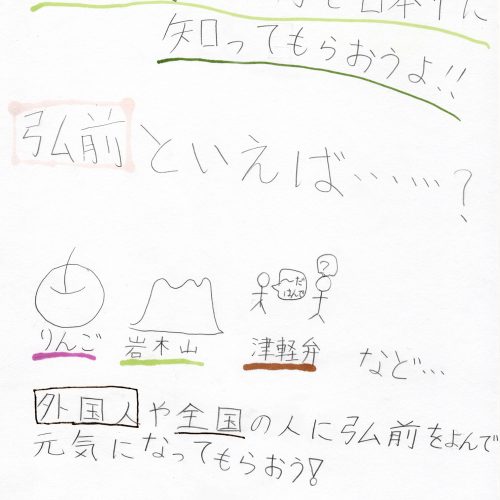 を日本中に
知ってもらおうよ!!
弘前といえば……?
〜だ
はんで
?
りんご 岩木山 津軽弁 など…
外国人や全国の人に弘前をよんで
元気になってもらおう!